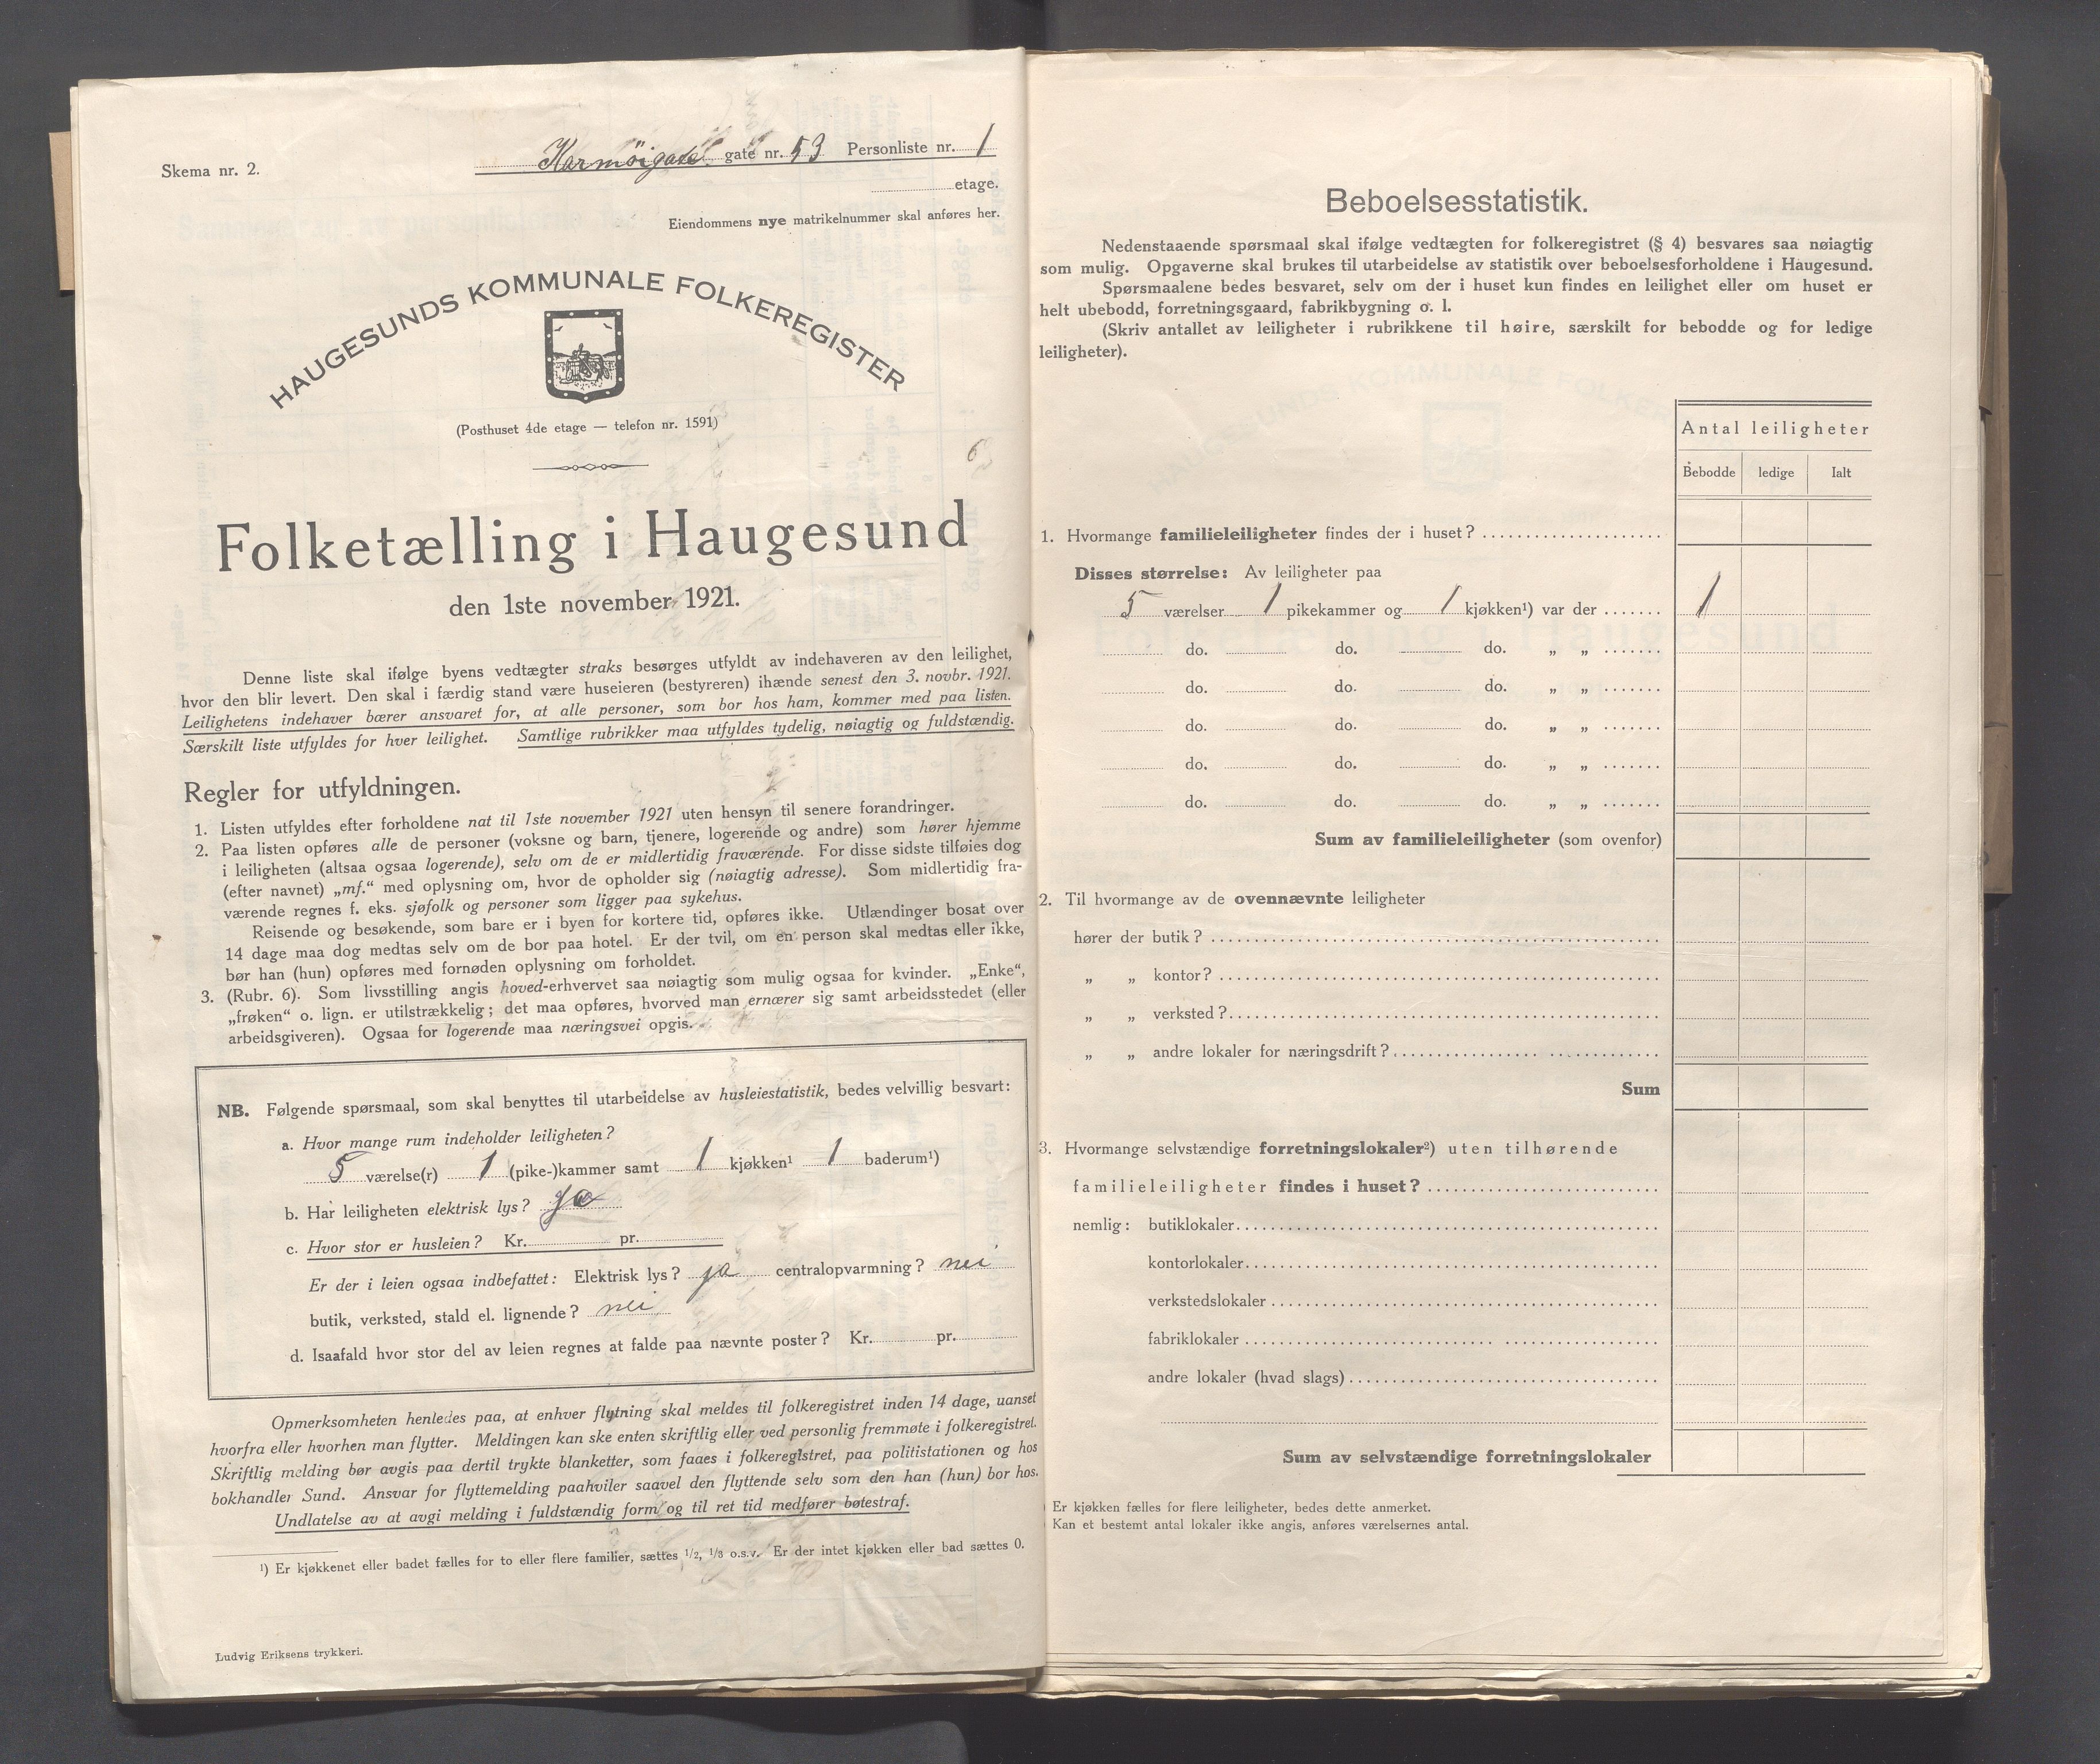 Skema nr. 2.
Karmöigate gate nr. 53 Personliste nr. 1
etage.
Eiendommens nye matrikelnummer skal anføres her.
HAUGESUNDS KOMMUNALE FOLKEREGISTER
(Posthuset 4de etage — telefon nr. 1591)
Folketælling i Haugesund
den 1ste november 1921.
Denne liste skal ifølge byens vedtægter straks besørges utfyldt av indehaveren av den leilighet,
hvor den blir levert. Den skal i færdig stand være huseieren (bestyreren) ihænde senest den 3. novbr. 1921.
Leilighetens indehaver bærer ansvaret for, at alle personer, som bor hos ham, kommer med paa listen.
Særskilt liste utfyldes for hver leilighet. Samtlige rubrikker maa utfyldes tydelig, nøiagtig og fuldstændig.
Regler for utfyldningen.
1. Listen utfyldes efter forholdene nat til 1ste november 1921 uten hensyn til senere forandringer.
2. Paa listen opføres alle de personer (voksne og barn, tjenere, logerende og andre) som hører hjemme
i leiligheten (altsaa ogsaa logerende), selv om de er midlertidig fraværende. For disse sidste tilføies dog
(efter navnet) „mf.“ med oplysning om, hvor de opholder sig (nøiagtig adresse). Som midlertidig fra-
værende regnes f. eks. sjøfolk og personer som ligger paa sykehus.
Reisende og besøkende, som bare er i byen for kortere tid, opføres ikke. Utlændinger bosat over
14 dage maa dog medtas selv om de bor paa hotel. Er der tvil, om en person skal medtas eller ikke,
bør han (hun) opføres med fornøden oplysning om forholdet.
3. (Rubr. 6). Som livsstilling angis hoved-erhvervet saa nøiagtig som mulig ogsaa for kvinder. „Enke“,
„frøken“ o. lign. er utilstrækkelig; det maa opføres, hvorved man ernærer sig samt arbeidsstedet (eller
arbeidsgiveren). Ogsaa for logerende maa næringsvei opgis.
NB. Følgende spørsmaal, som skal benyttes til utarbeidelse av husleiestatistik, bedes velvillig besvart:
a. Hvor mange rum indeholder leiligheten?
5 værelse(r) 1 (pike-)kammer samt 1 kjøkken¹ 1 baderum¹)
b. Har leiligheten elektrisk lys? ja
c. Hvor stor er husleien? Kr. pr.
Er der i leien ogsaa indbefattet: Elektrisk lys? ja centralopvarmning? nei
butik, verksted, stald el. lignende? nei
d. Isaafald hvor stor del av leien regnes at falde paa nævnte poster? Kr. pr.
Opmerksomheten henledes paa, at enhver flytning skal meldes til folkeregistret inden 14 dage, uanset
hvorfra eller hvorhen man flytter. Meldingen kan ske enten skriftlig eller ved personlig fremmøte i folkeregistret.
Skriftlig melding bør avgis paa dertil trykte blanketter, som faaes i folkeregistret, paa politistationen og hos
bokhandler Sund. Ansvar for flyttemelding paahviler saavel den flyttende selv som den han (hun) bor hos.
Undlatelse av at avgi melding i fuldstændig form og til ret tid medfører bøtestraf.
¹) Er kjøkkenet eller badet fælles for to eller flere familier, sættes 1/2, 1/3 o.s.v. Er der intet kjøkken eller bad sættes 0.
Ludvig Eriksens trykkeri.
Beboelsesstatistik.
Nedenstaaende spørsmaal skal ifølge vedtægten for folkeregistret (§ 4) besvares saa nøiagtig
som mulig. Opgaverne skal brukes til utarbeidelse av statistik over beboelsesforholdene i Haugesund.
Spørsmaalene bedes besvaret, selv om der i huset kun findes en leilighet eller om huset er
helt ubebodd, forretningsgaard, fabrikbygning o. l.
(Skriv antallet av leiligheter i rubrikkene til høire, særskilt for bebodde og for ledige
leiligheter).
Antal leiligheter
Bebodde ledige Ialt
1. Hvormange familieleiligheter findes der i huset?
Disses størrelse: Av leiligheter paa
5 værelser 1 pikekammer og 1 kjøkken¹) var der 1
do. do. do. „ „
do. do. do. „ „
do. do. do. „ „
do. do. do. „ „
do. do. do. „ „
Sum av familieleiligheter (som ovenfor)
2. Til hvormange av de ovennævnte leiligheter
hører der butik?
„ „ kontor?
„ „ verksted?
„ „ andre lokaler for næringsdrift?
Sum
3. Hvormange selvstændige forretningslokaler²) uten tilhørende
familieleiligheter findes i huset?
nemlig: butiklokaler
kontorlokaler
verkstedslokaler
fabriklokaler
andre lokaler (hvad slags)
Sum av selvstændige forretningslokaler
Er kjøkken fælles for flere leiligheter, bedes dette anmerket.
Kan et bestemt antal lokaler ikke angis, anføres værelsernes antal.